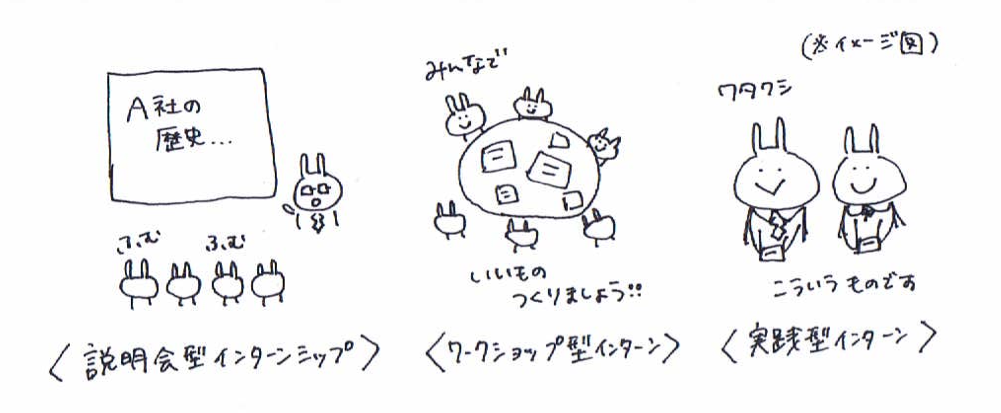 (※イメージ図)
A社の
歴史...
ふむ
ふむ
<説明会型インターンシップ>
みんなで
いいもの
つくりましょう!!
<ワークショップ型インターン>
ワタクシ
こういうものです
<実践型インターン>